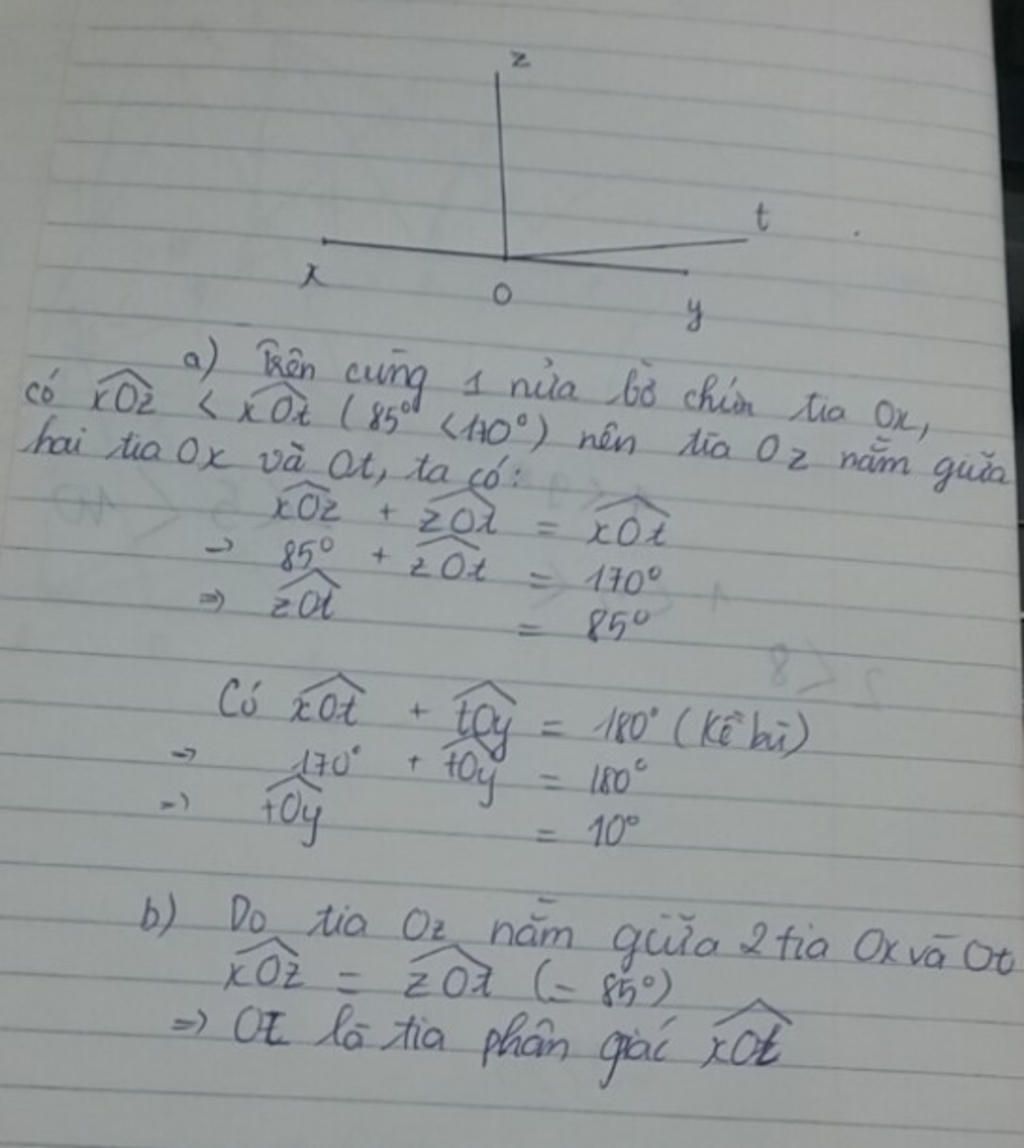 z
t
x
O
y
a) Trên cùng 1 nửa bờ chứa tia Ox,
có xOz < xOt (85° < 170°) nên tia Oz nằm giữa
hai tia Ox và Ot, ta có:
xOz + zOt = xOt
→ 85° + zOt = 170°
⇒ zOt = 85°
Có xOt + tOy = 180° (Kề bù)
→ 170° + tOy = 180°
⇒ tOy = 10°
b) Do tia Oz nằm giữa 2 tia Ox và Ot
xOz = zOt (= 85°)
⇒ Ot là tia phân giác xOt